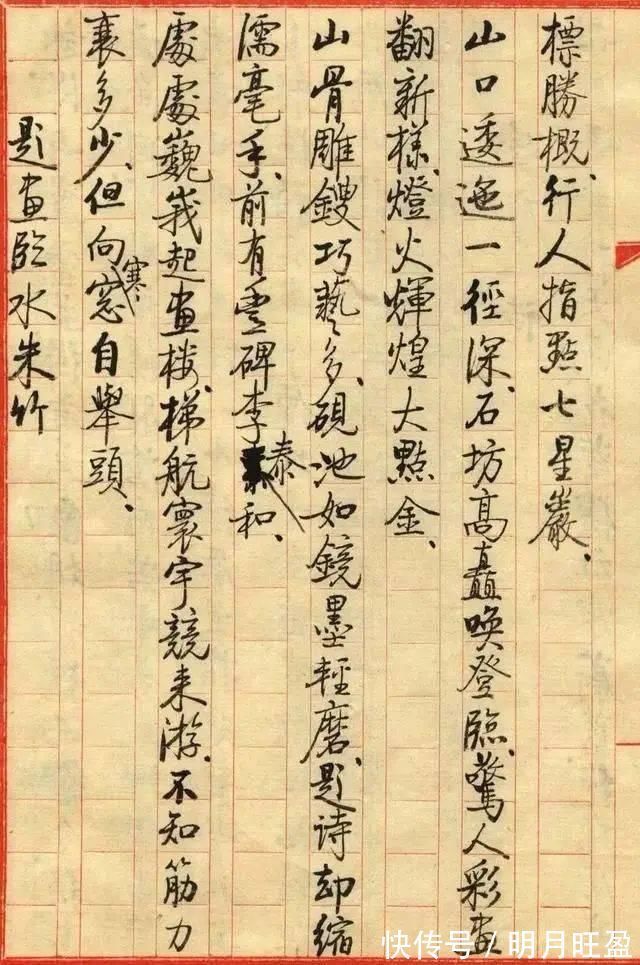 標勝概、行人指點七星巖、
山口逶迤一徑深、石坊高矗喚登臨、驚人彩畫
翻新樣、燈火輝煌大點金、
山骨雕鎪巧藝多、硯池如鏡墨輕磨、題詩却縮
濡毫手、前有豐碑李泰和、
處處巍峩起畫樓、梯航寰宇競来游、不知筋力
衰多少、但向寒窓自舉頭、
題畫臨水朱竹
快传号/明月旺盈